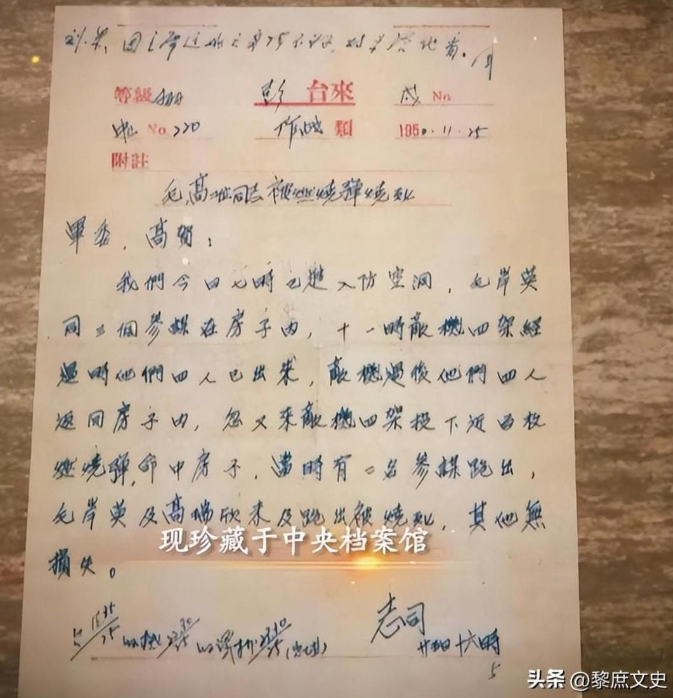 等級 彭 台來 No
No. 220 作戰 類 1950.11.25
附註
毛高二同志被燃燒彈燒死
軍委，高賀：
我們今日七時已進入防空洞，毛岸英
同三個參謀在房子內，十一時敵機四架經
過時他們四人已出來，敵機過後他們四人
返回房子內，忽又來敵機四架投下近百枚
燃燒彈，命中房子，當時有二名參謀跑出，
毛岸英及高瑞欣未及跑出被燒死，其他無
損失。
现珍藏于中央档案馆
志司
十六時
头条 @黎庶文史